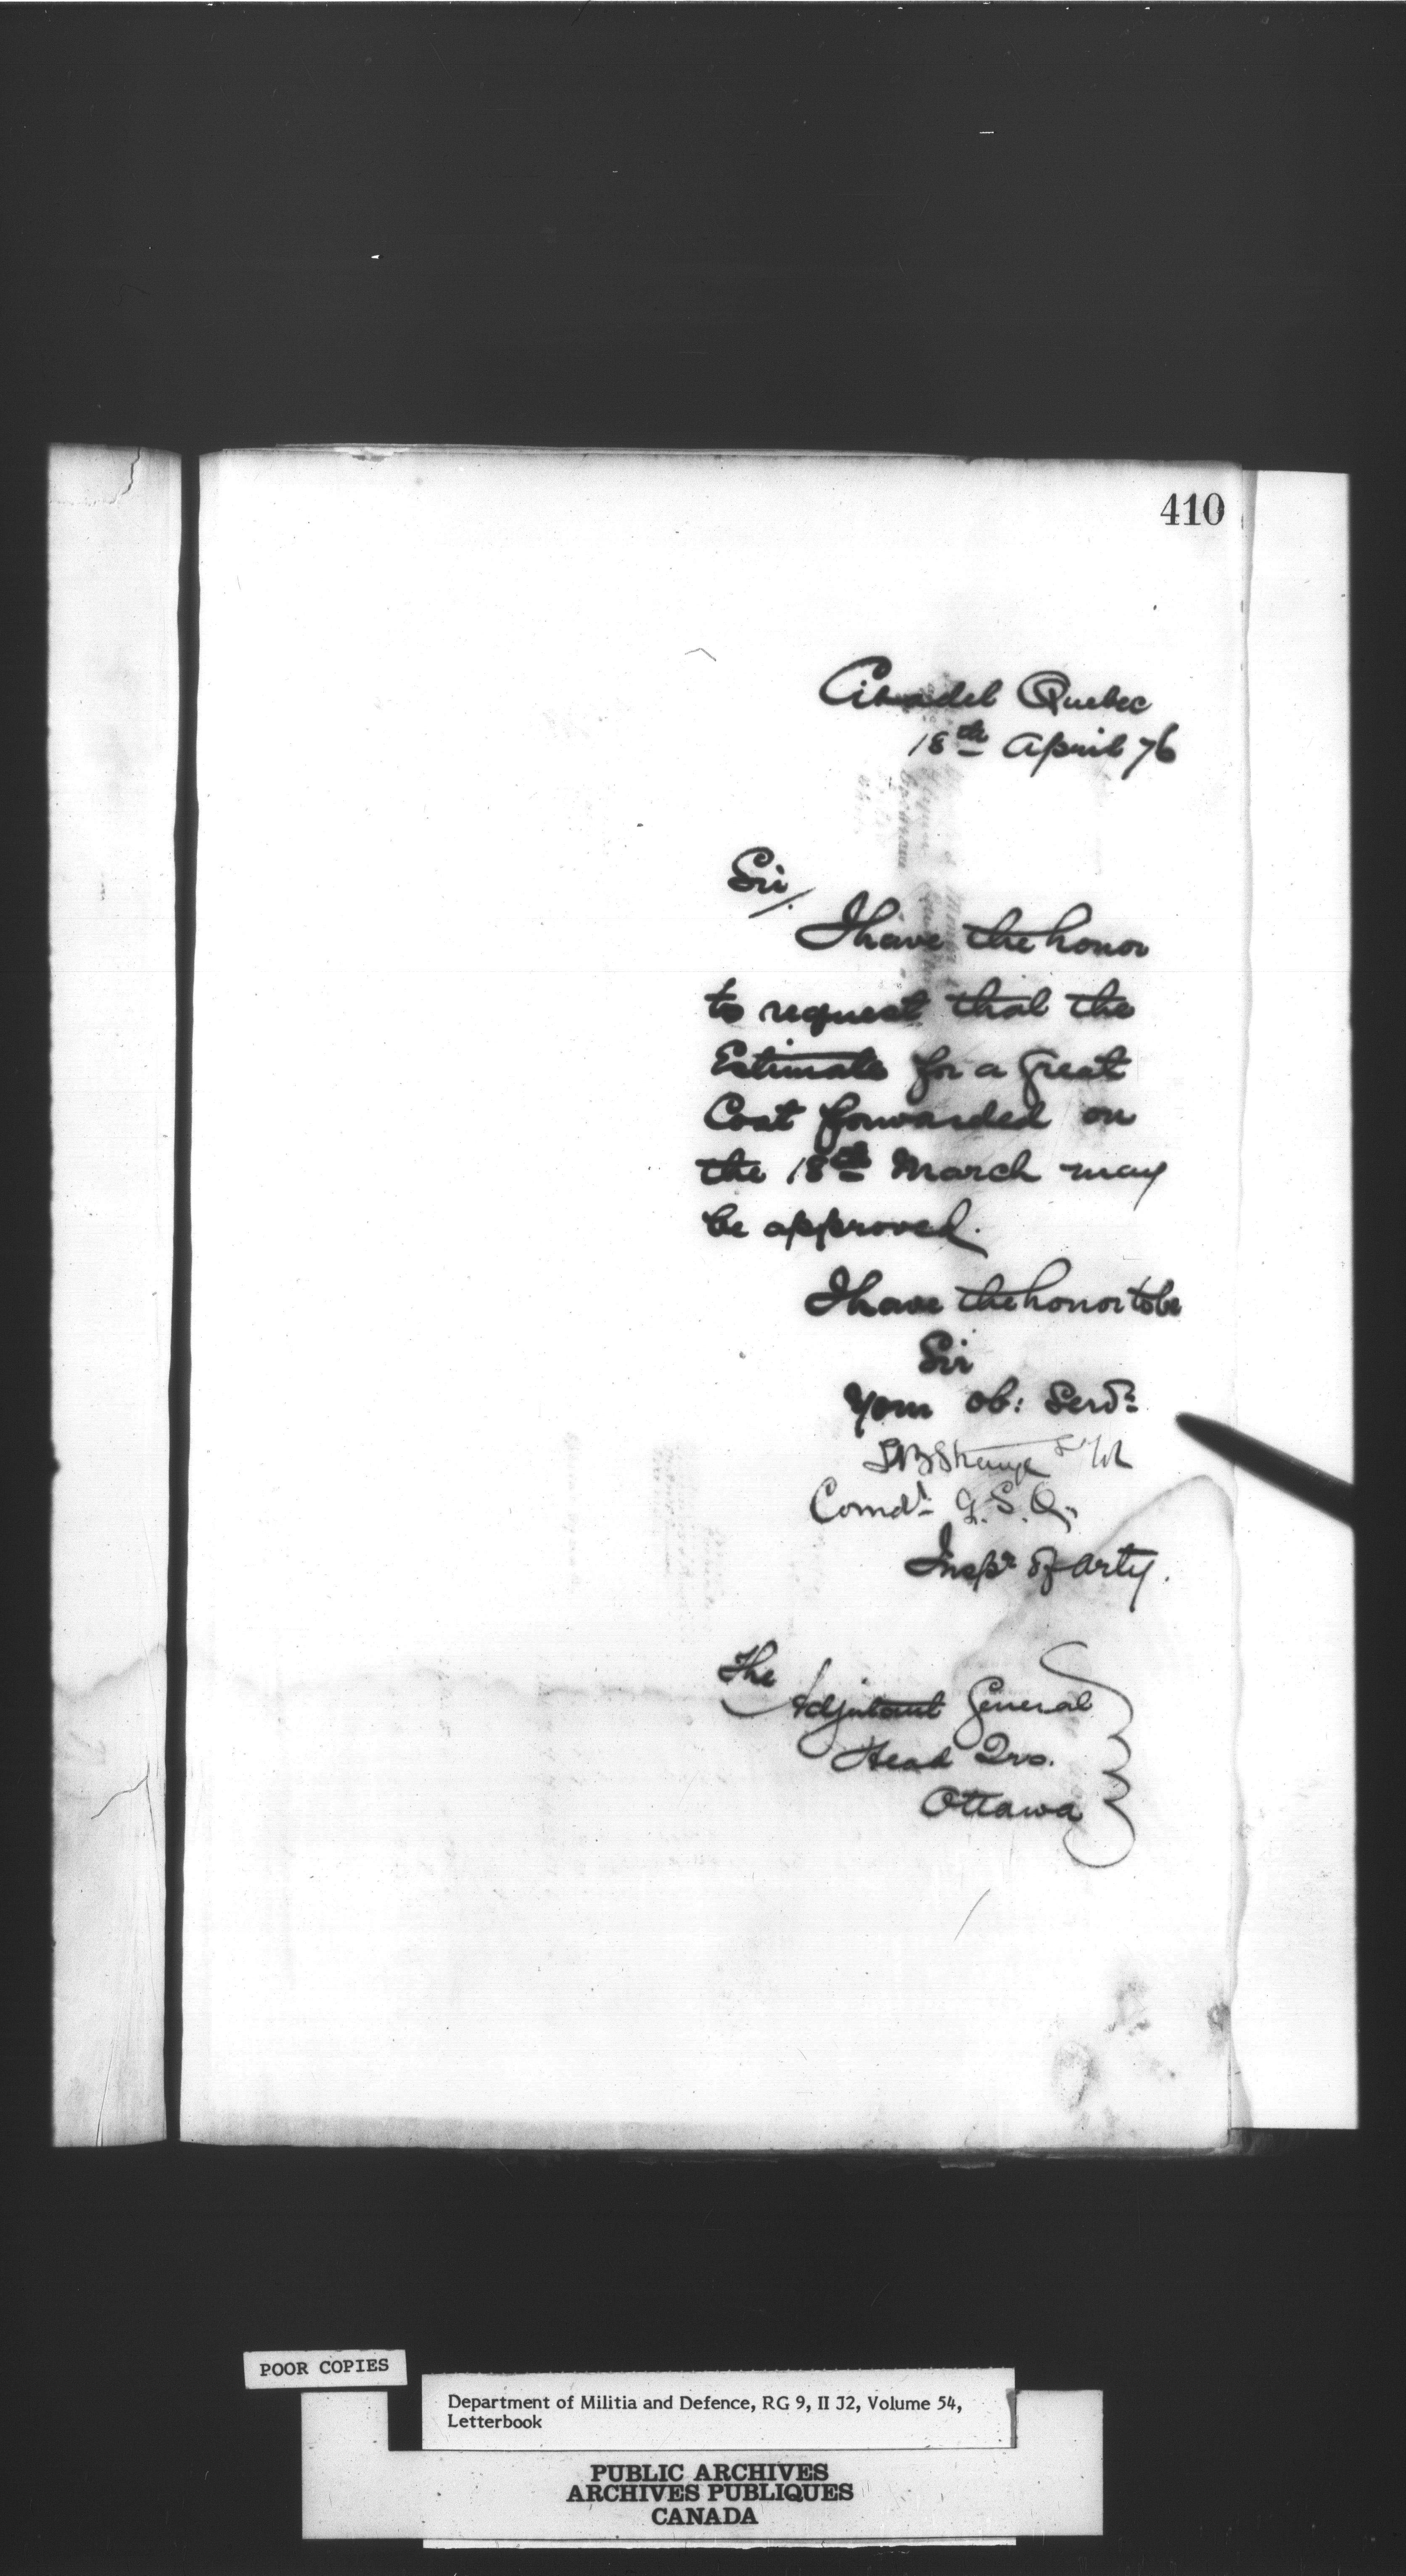 410
Citadel Quebec
18th April 76
Sir/.
I have the honor
to request that the
Estimate for a Great
Coat forwarded on
the 18th March may
be approved.
I have the honor to be
Sir
Your ob: Servt
TBStrange Lt Col
Comdt G.S.Q.
Inspr of Arty.
The
Adjutant General
Head Qrs.
Ottawa
POOR COPIES
Department of Militia and Defence, RG 9, II J2, Volume 54,
Letterbook
PUBLIC ARCHIVES
ARCHIVES PUBLIQUES
CANADA